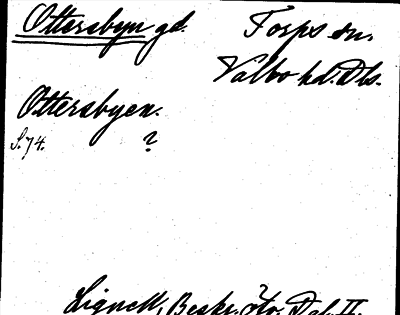 Ottersbyn gd. Torps sn.
Valbo hd. Dls.
Ottersbyen.
S. 74. ?
Lignell, Beskr. öfv. Dal. II.